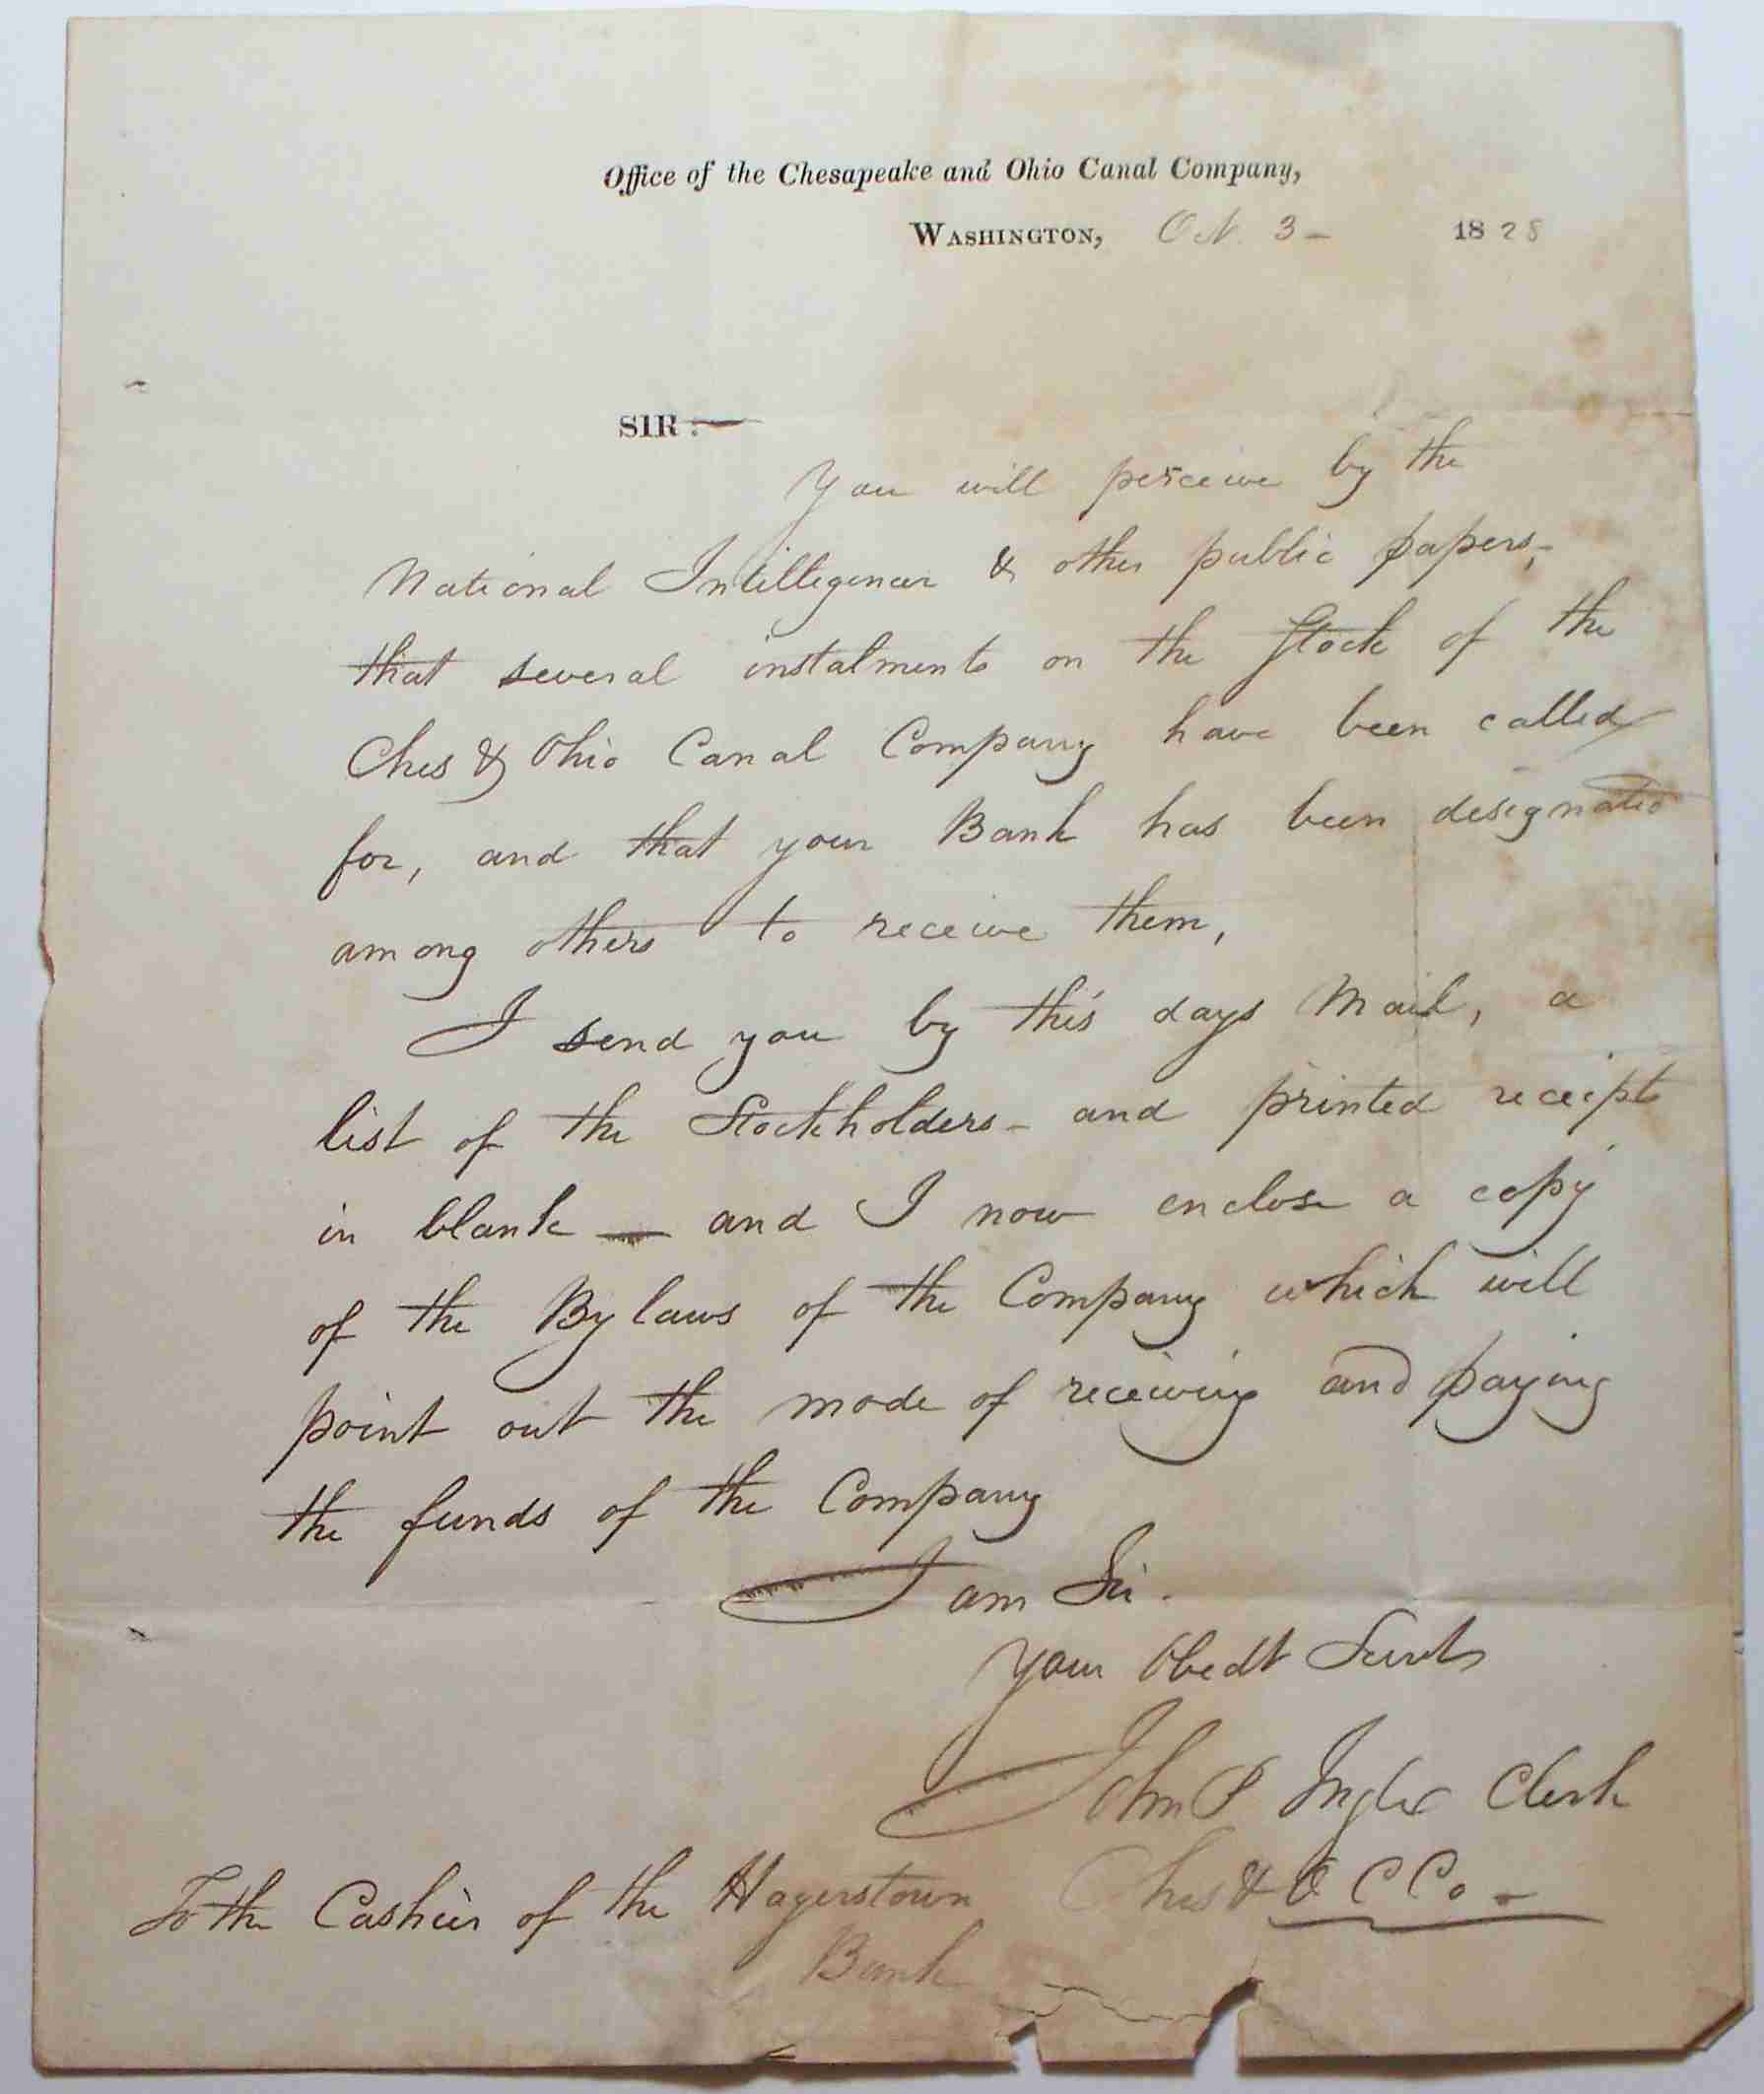 Office of the Chesapeake and Ohio Canal Company,
WASHINGTON, Oct. 3 – 1828
SIR : —
You will perceive by the
National Intelligencer & other public papers,
that several instalments on the Stock of the
Ches & Ohio Canal Company have been called
for, and that your Bank has been designated
among others to receive them,
I send you by this days Mail, a
list of the Stockholders – and printed receipts
in blank — and I now enclose a copy
of the By laws of the Company which will
point out the mode of receiving and paying
the funds of the Company
I am Sir.
Your Obedt Servt
John P Ingle Clerk
To the Cashier of the Hagerstown
Bank
Ches & O C Co –